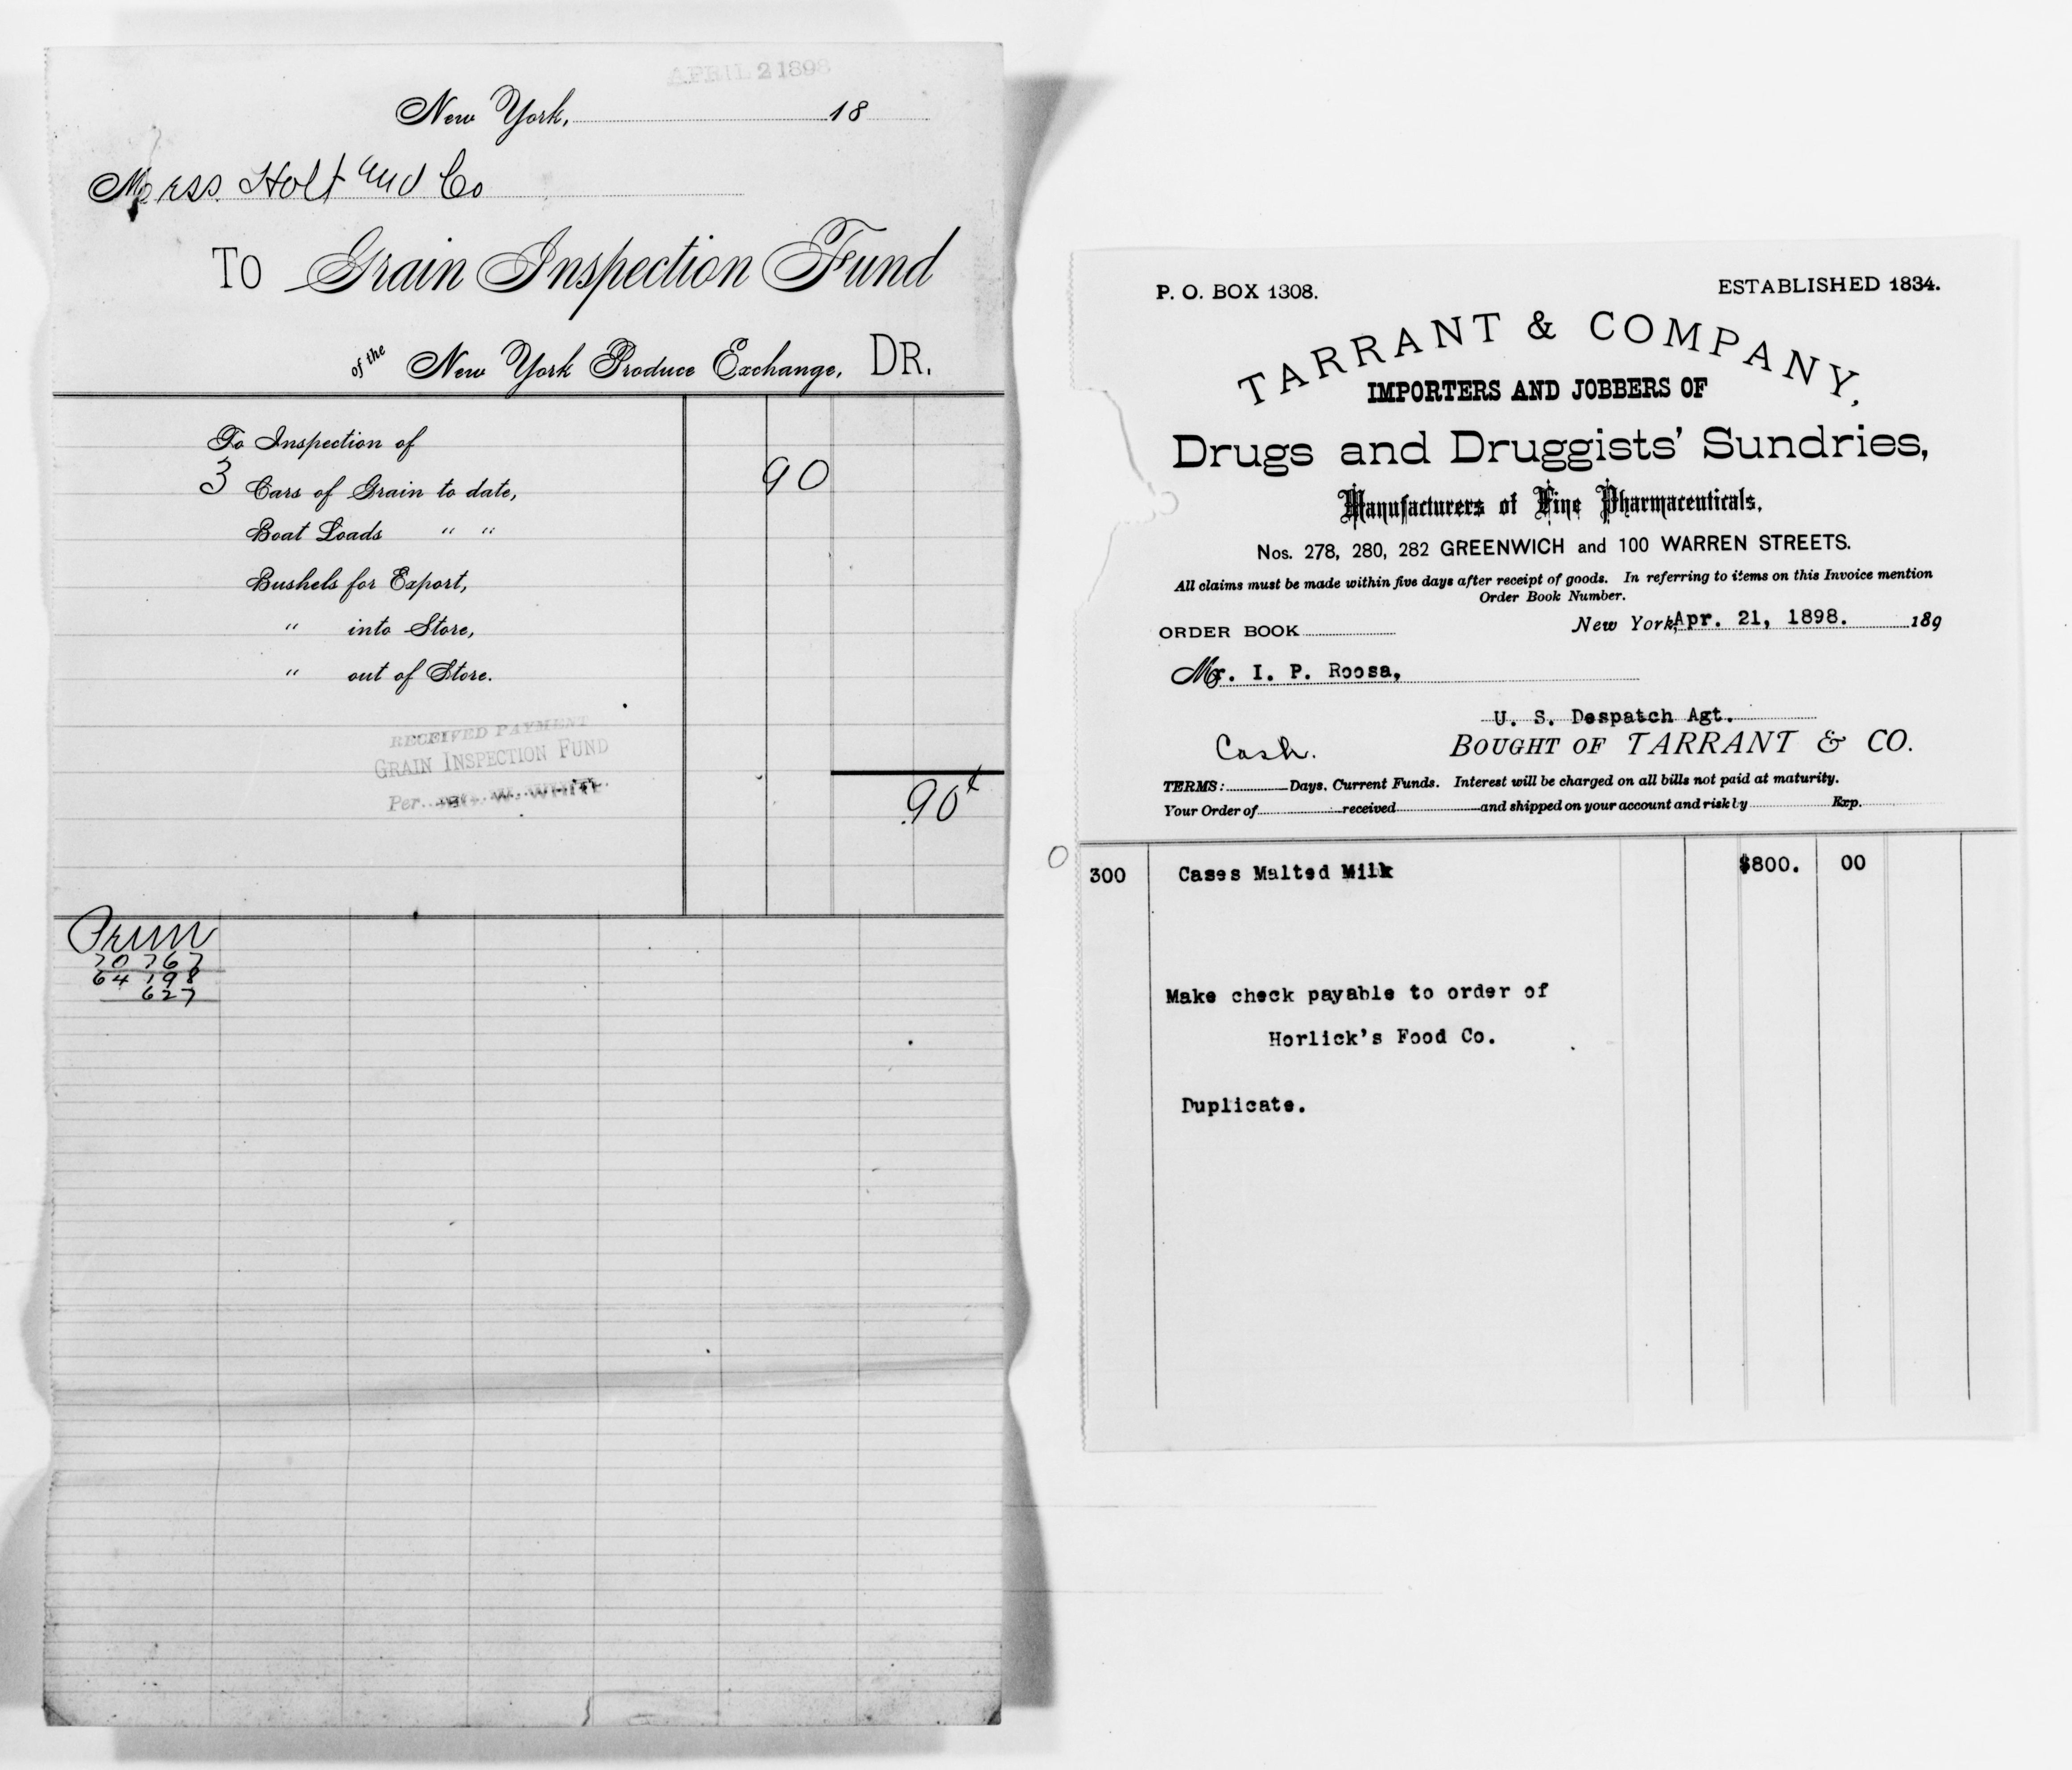 APRIL 2 1898
New York, 18
Mess. Holt and Co
To Grain Inspection Fund
of the New York Produce Exchange, DR.
To Inspection of
3 Cars of Grain to date, 90
Boat Loads " "
Bushels for Export,
" into Store,
" out of Store.
RECEIVED PAYMENT
GRAIN INSPECTION FUND
Per W. WHITE.
90¢
70 767
64 198
627
P. O. BOX 1308. ESTABLISHED 1834.
TARRANT & COMPANY,
IMPORTERS AND JOBBERS OF
Drugs and Druggists' Sundries,
Manufacturers of Fine Pharmaceuticals,
Nos. 278, 280, 282 GREENWICH and 100 WARREN STREETS.
All claims must be made within five days after receipt of goods. In referring to items on this Invoice mention
Order Book Number.
ORDER BOOK New York, Apr. 21, 1898. 189
Mr. I. P. Roosa,
U. S. Despatch Agt.
Cash. BOUGHT OF TARRANT & CO.
TERMS: Days. Current Funds. Interest will be charged on all bills not paid at maturity.
Your Order of received and shipped on your account and risk by Exp.
300 Cases Malted Milk $800. 00
Make check payable to order of
Horlick's Food Co.
Duplicate.